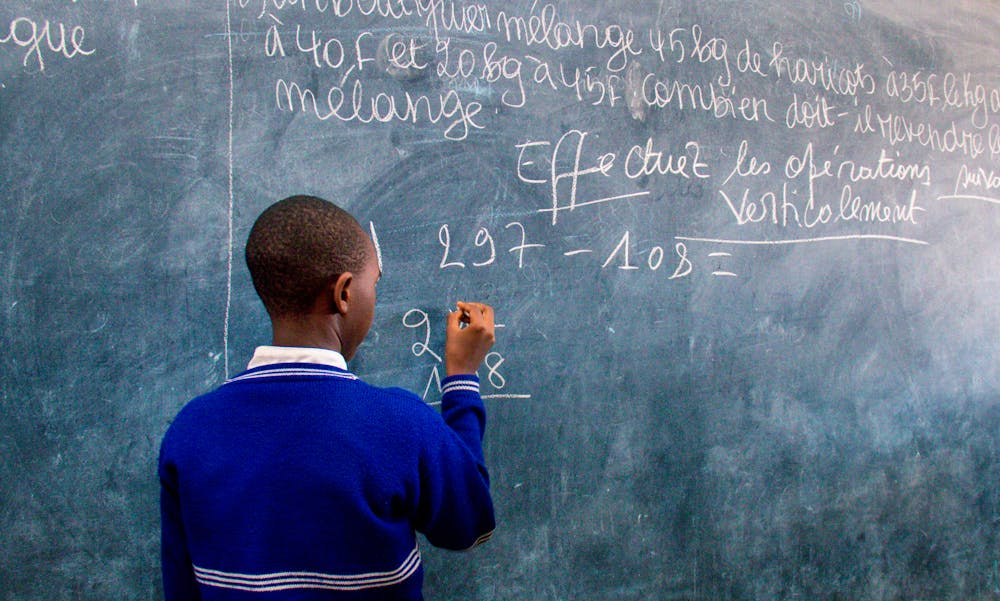 que
mélange 45 kg de haricots à 35F le kg
à 40F et 20 kg à 45F. Combien doit-il revendre le
mélange.
Effectuez les opérations
verticolement
297 - 108 =
2
1 8